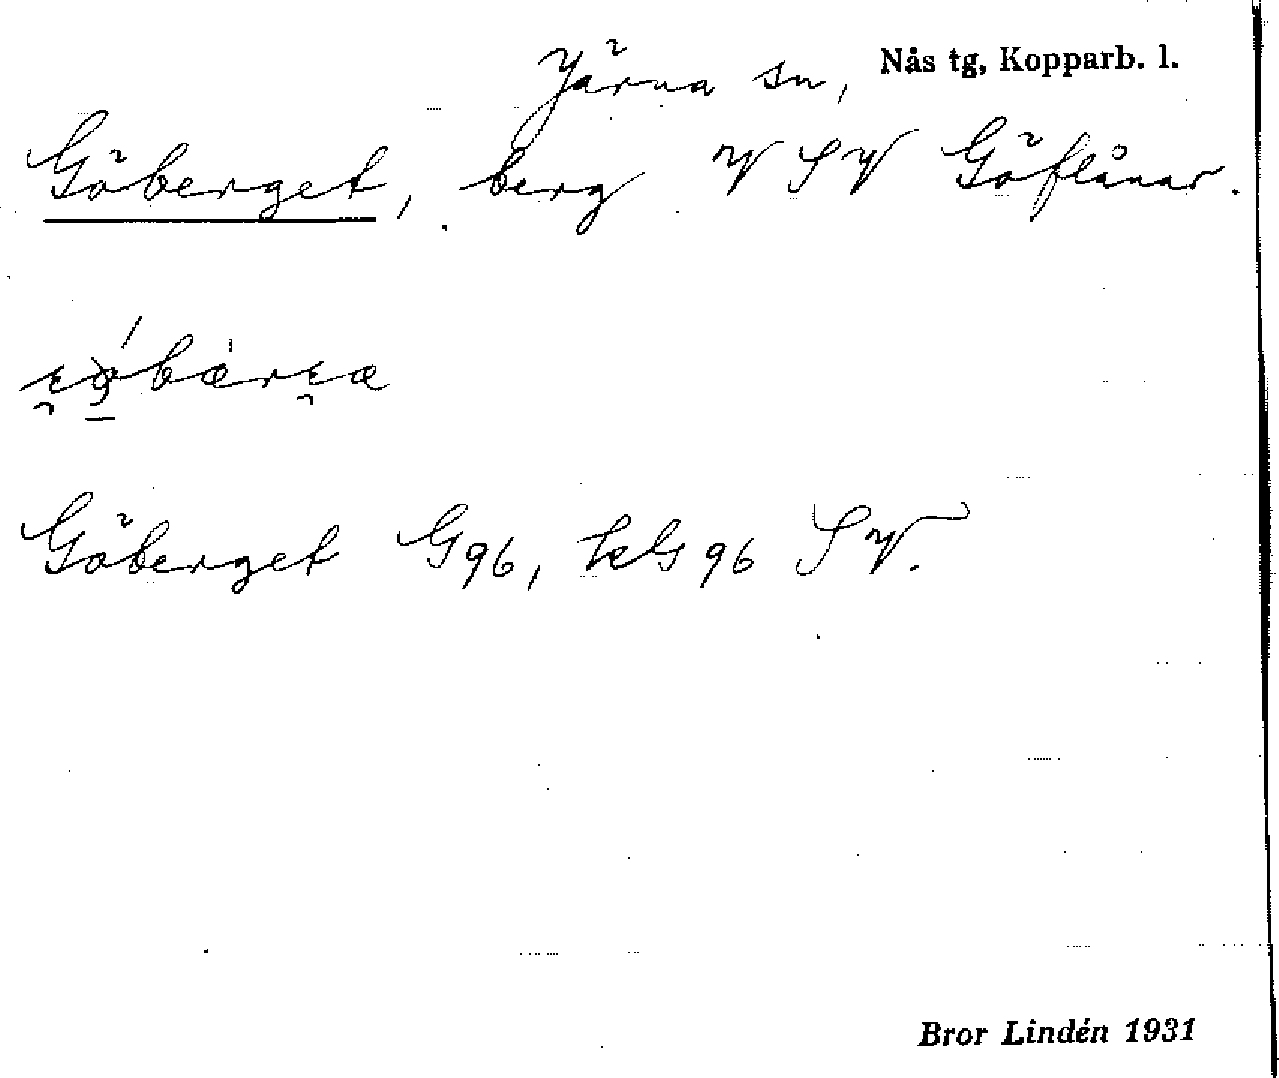 Järna sn, Nås tg, Kopparb. l.
Göberget, berg V SV Göflånar.
Göberget G96, hG96 SV.
Bror Lindén 1931